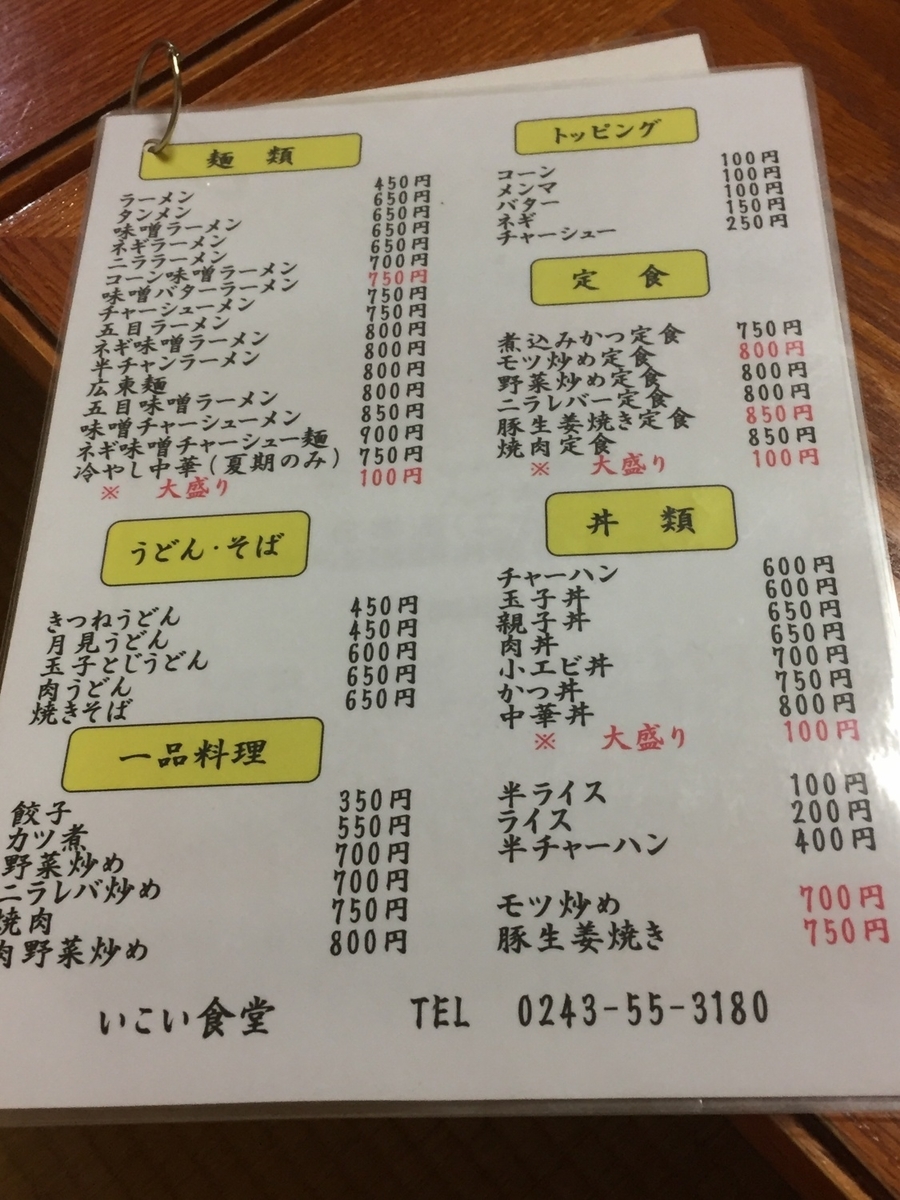 麺類
ラーメン 450円
タンメン 650円
味噌ラーメン 650円
ネギラーメン 650円
ニララーメン 650円
コーン味噌ラーメン 700円
味噌バターラーメン 750円
チャーシューメン 750円
五目ラーメン 750円
ネギ味噌ラーメン 800円
半チャンラーメン 800円
広東麺 800円
五目味噌ラーメン 800円
味噌チャーシューメン 850円
ネギ味噌チャーシュー麺 900円
冷やし中華(夏期のみ) 750円
※ 大盛り 100円
うどん・そば
きつねうどん 450円
月見うどん 450円
玉子とじうどん 600円
肉うどん 650円
焼きそば 650円
一品料理
餃子 350円
カツ煮 550円
野菜炒め 700円
ニラレバ炒め 700円
焼肉 750円
肉野菜炒め 800円
トッピング
コーン 100円
メンマ 100円
バター 100円
ネギ 150円
チャーシュー 250円
定食
煮込みかつ定食 750円
モツ炒め定食 800円
野菜炒め定食 800円
ニラレバー定食 800円
豚生姜焼き定食 850円
焼肉定食 850円
※ 大盛り 100円
丼類
チャーハン 600円
玉子丼 600円
親子丼 650円
肉丼 650円
小エビ丼 700円
かつ丼 750円
中華丼 800円
※ 大盛り 100円
半ライス 100円
ライス 200円
半チャーハン 400円
モツ炒め 700円
豚生姜焼き 750円
いこい食堂 TEL 0243-55-3180